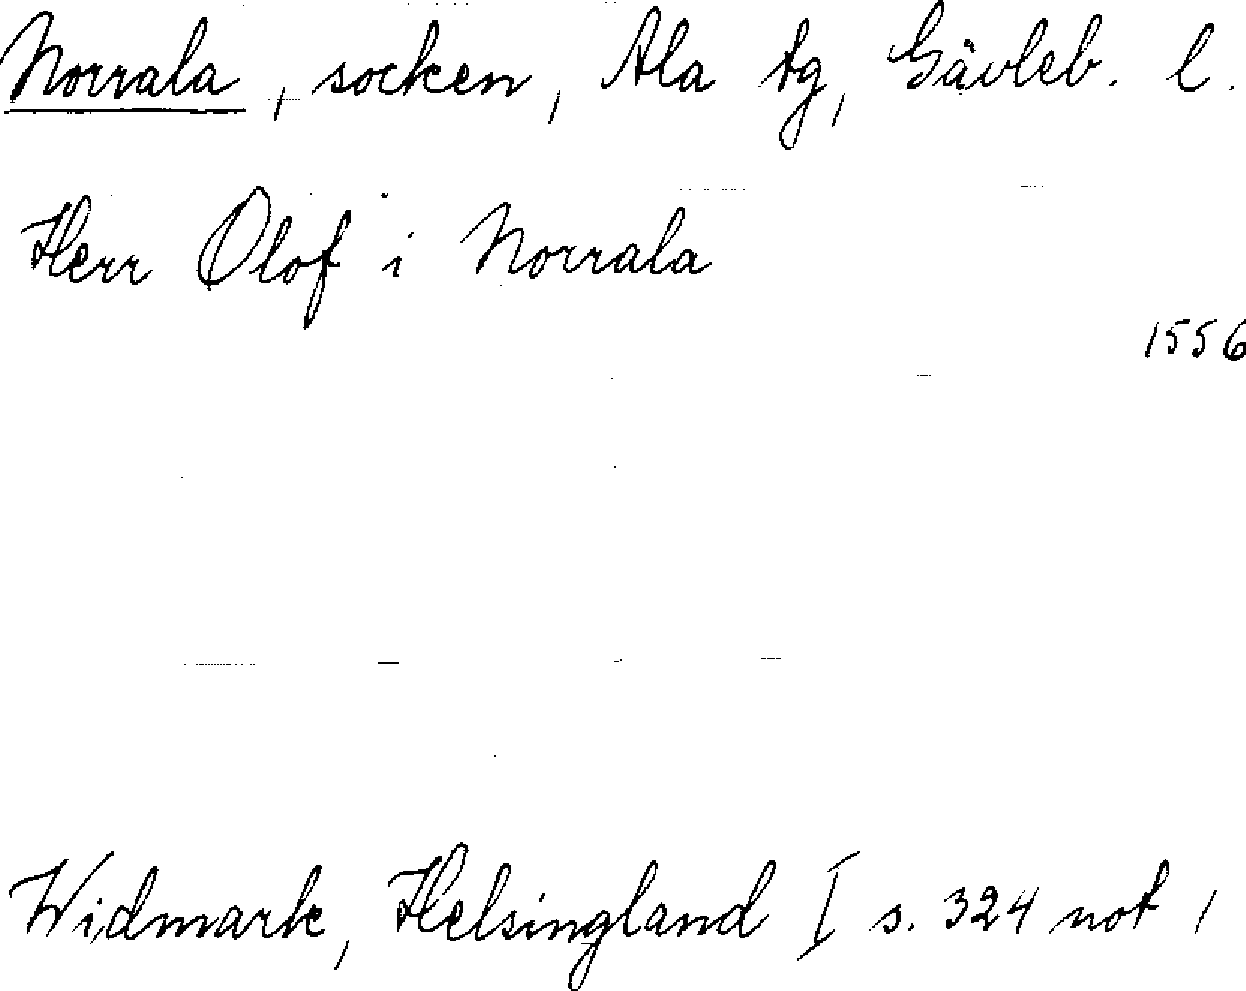 Norrala, socken, Ala tg, Gävleb. l.
Herr Olof i Norrala
1556
Widmark, Helsingland I s. 324 not 1